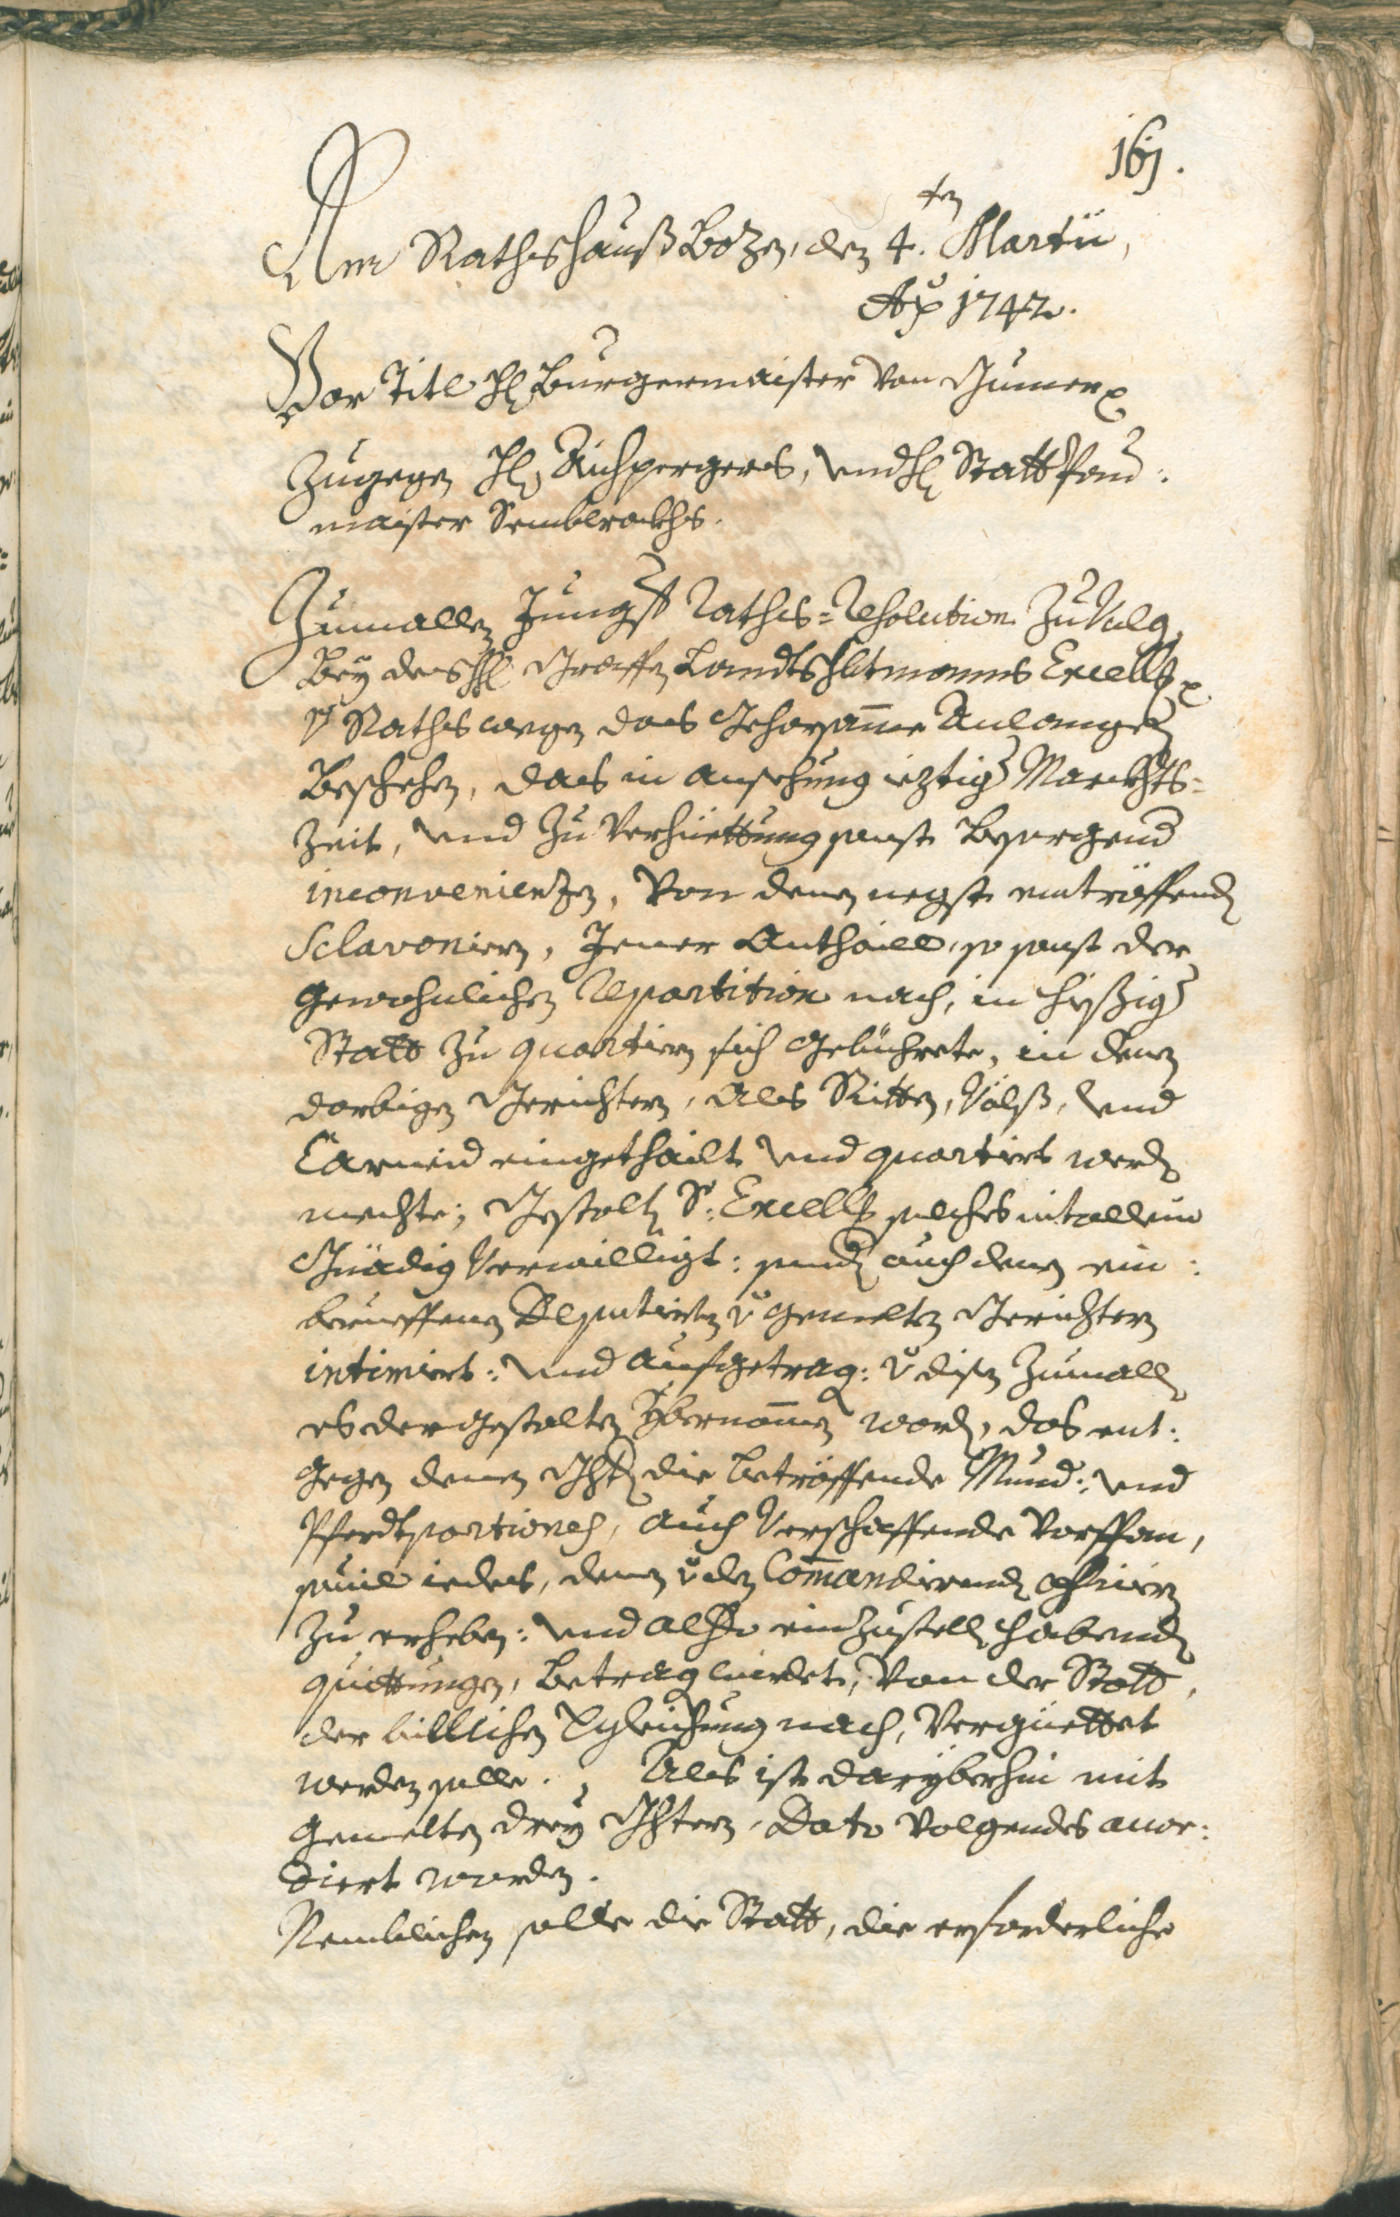 161.
Am Rathshauß Bozen, den 4.ten Martii,
Ao 1742.
Vor Titl H. Burgermaister von Gumer
Zugegen H. Aichpergers, und H. Statt Pau:
maister Semblrockhs.
Zumallen Jungst Raths=Resolution Zuvolg
Bey des H. Graffen Landtshbtmanns Excell.
Raths wegen das Gehorsamme Anlangen
Beschehen, das in ansehung iezig Marckhts=
Zeit, und Zu Verhüettung sonst Besorgend
inconvenienzen, Von denen negst eintröffend
Sclavoniern, Jener Anthaill, so sonst der
Gewohnlichen Repartition nach, in hießig
Statt Zu quartiern sich Gebührete, in denen
dorbigen Gerichtern, als Ritten, Völß, und
Carneid eingethailt und quartiert werden
mechte; Gestalten Sr: Excell. solches in allem
Gnädig Verwilligt: auch denen ein:
berueffenen Deputierten v. gemelten Gerichtern
intimiert: und aufgetrag: v. disen Zumallen
es dergestalten Ybernommen worden, das ent:
gegen denen Ghten die betröffende Mund: und
Pferdtportionen, auch Verschaffende Vorspan,
sovil iedes, denen v. den Commandierenden officiern
Zu erheben: und alhero einzustellen habenden
quittungen, betragen wirdet, Von der Statt,
der billichen Vgleichung nach, Vergüettet
werden solle. Als ist daryberhin mit
Gemelten drey Ghtern, Dato Volgendes accor:
diert worden.
Nemblichen solle die Statt, die erforderliche